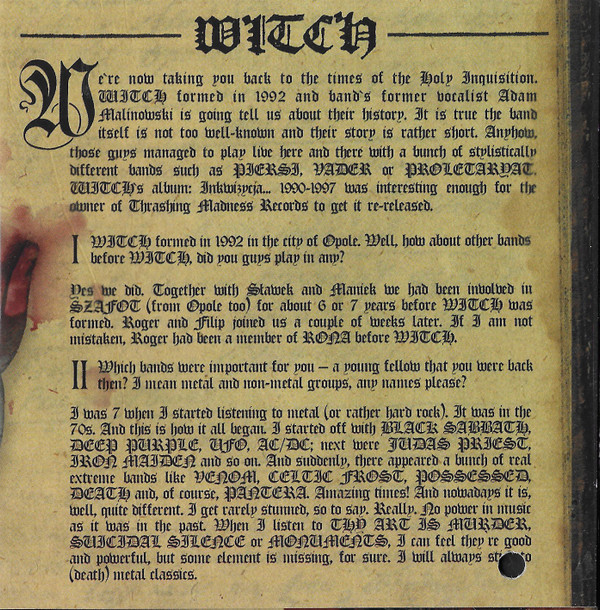 WITCH
We're now taking you back to the times of the Holy Inquisition.
WITCH formed in 1992 and band's former vocalist Adam
Malinowski is going tell us about their history. It is true the band
itself is not too well-known and their story is rather short. Anyhow,
those guys managed to play live here and there with a bunch of stylistically
different bands such as PIERSI, VADER or PROLETARYAT.
WITCH's album: Inkwizycja... 1990-1997 was interesting enough for the
owner of Thrashing Madness Records to get it re-released.
I WITCH formed in 1992 in the city of Opole. Well, how about other bands
before WITCH, did you guys play in any?
Yes we did. Together with Sławek and Maniek we had been involved in
SZAFOT (from Opole too) for about 6 or 7 years before WITCH was
formed. Roger and Filip joined us a couple of weeks later. If I am not
mistaken, Roger had been a member of RONA before WITCH.
II Which bands were important for you – a young fellow that you were back
then? I mean metal and non-metal groups, any names please?
I was 7 when I started listening to metal (or rather hard rock). It was in the
70s. And this is how it all began. I started off with BLACK SABBATH,
DEEP PURPLE, UFO, AC/DC; next were JUDAS PRIEST,
IRON MAIDEN and so on. And suddenly, there appeared a bunch of real
extreme bands like VENOM, CELTIC FROST, POSSESSED,
DEATH and, of course, PANTERA. Amazing times! And nowadays it is,
well, quite different. I get rarely stunned, so to say. Really. No power in music
as it was in the past. When I listen to THY ART IS MURDER,
SUICIDAL SILENCE or MONUMENTS, I can feel they're good
and powerful, but some element is missing, for sure. I will always to
(death) metal classics.